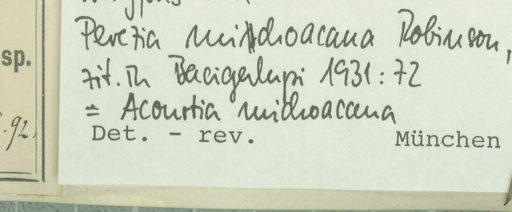 Perezia michoacana Robinson,
sp.
zit. in Bacigalupi 1931 : 72
= Acourtia michoacana
.92.
Det. - rev. München